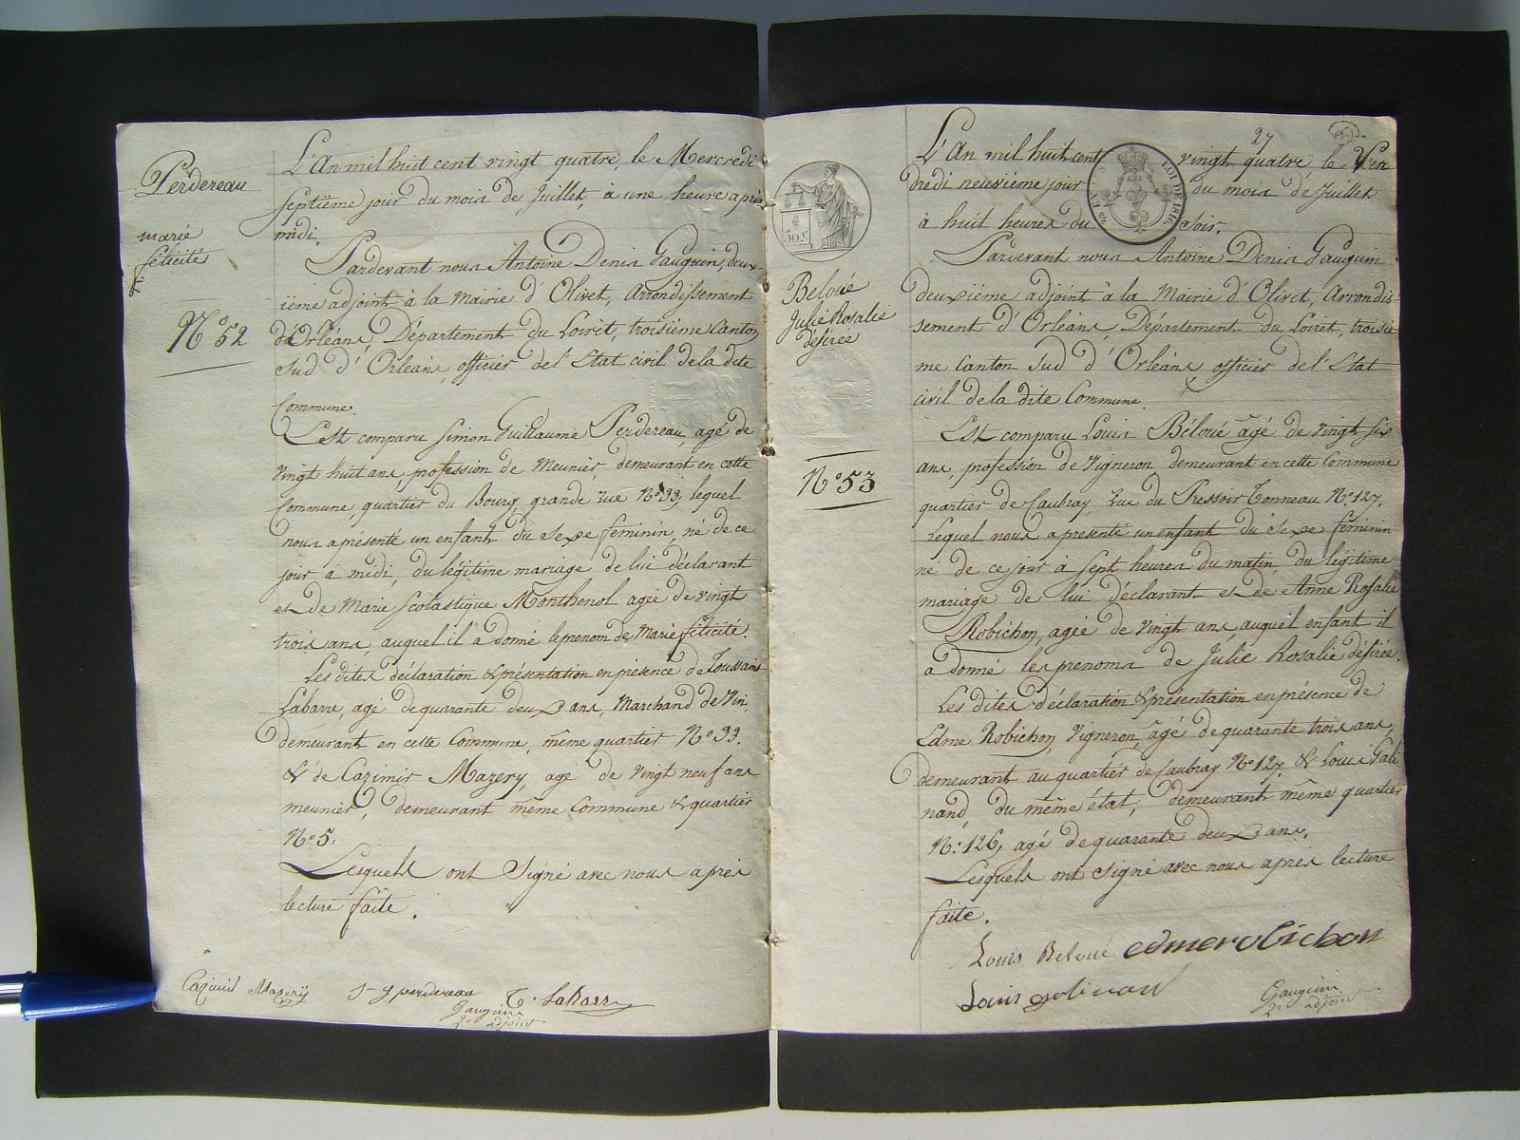 Perdereau
marie
félicité
N° 52
L'An mil huit cent vingt quatre, le Mercredi
septiéme jour du mois de Juillet, à une heure après
midi.
Pardevant nous Antoine Denis Gauguin, deux-
iéme adjoint à la Mairie d'Olivet, Arrondissement
d'Orléans, Département du Loiret, troisiéme Canton
Sud d'Orléans, officier de l'Etat civil de la dite
Commune.
Est comparu Simon Guillaume Perdereau, agé de
vingt huit ans, profession de Meunier, demeurant en cette
Commune, quartier du Bourg, grande rue N° 33, lequel
nous a présenté un enfant du Sexe féminin, né de ce
jour à midi, du légitime mariage de lui déclarant
et de Marie Scolastique Monthenol agée de vingt
trois ans, auquel il a donné le prenom de Marie félicité.
Les dites déclaration & présentation en présence de Toussaint
Labarre, agé de quarante deux ans, Marchand de Vin,
demeurant en cette Commune, même quartier N° 33.
& de Cazimir Mazery, agé de vingt neuf ans
meunier, demeurant même Commune & quartier
N° 5.
Lesquels ont Signé avec nous après
lecture faite.
Mazery S-g perdereau T. LaBarre
Gauguin
adjoint
27
Beloué
Julie Rosalie
désirée
N° 53
L'An mil huit cent vingt quatre le Ven
dredi neuvieme jour du mois de Juillet
à huit heures du soir.
Pardevant nous Antoine Denis Gauguin
deuxiéme adjoint à la Mairie d'Olivet, Arrondis-
sement d'Orléans, Département du Loiret, troisié
me Canton Sud d'Orléans officier de l'Etat
civil de la dite Commune.
Est comparu Louis Béloué agé de vingt six
ans, profession de Vigneron demeurant en cette Commune
quartier de Caubray, rue du Pressoir Tonneau N° 127.
Lequel nous a presenté un enfant du Sexe féminin
né de ce jour à sept heures du matin du légitime
mariage de lui déclarant et de Anne Rosalie
Robichon, agée de vingt ans auquel enfant il
a donné les prenoms de Julie Rosalie désirée.
Les dites déclaration & présentation en présence de
Edme Robichon, Vigneron, agé de quarante trois ans,
demeurant au quartier de Caubray N° 127. & Louis Gali
nand, du même état, demeurant même quartier
N° 126, agé de quarante deux ans.
Lesquels ont signé avec nous après lecture
faite.
Louis Beloué edme robichon
Louis
Gauguin
adjoint